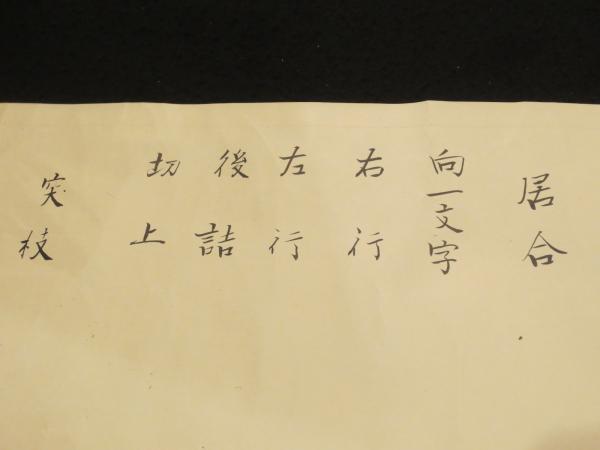 居合
向一文字
右行
左行
後詰
切上
突枝